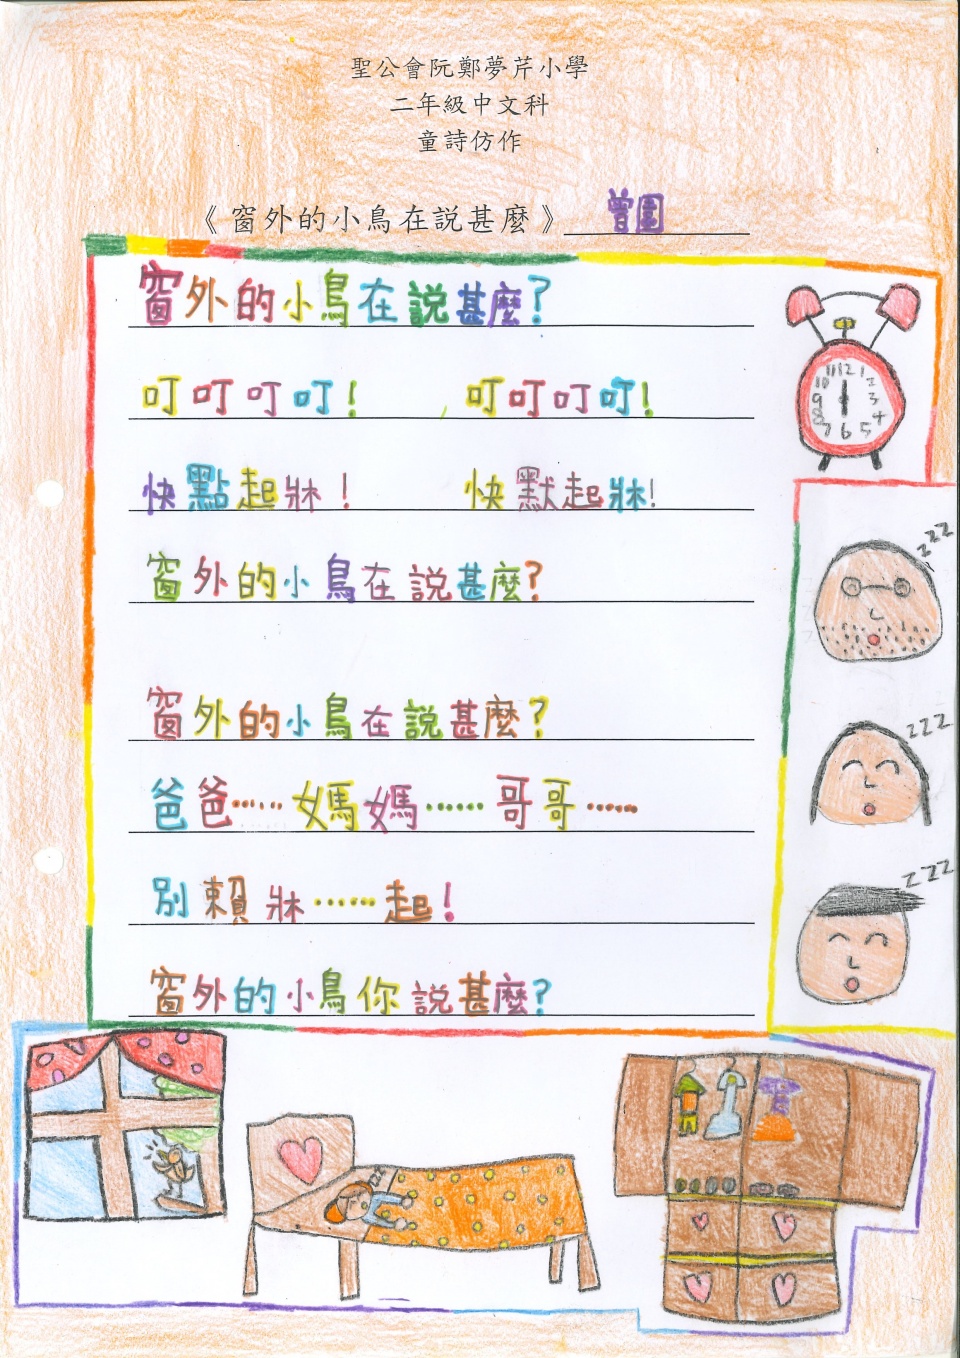 聖公會阮鄭夢芹小學
二年級中文科
童詩仿作
《窗外的小鳥在説甚麼》 曾
窗外的小鳥在説甚麼?
叮叮叮叮！ 叮叮叮叮!
快點起牀！ 快默起牀!
窗外的小鳥在説甚麼?
窗外的小鳥在説甚麼?
爸爸……媽媽……哥哥……
別賴牀……起!
窗外的小鳥你説甚麼?
12 1 2 3 4 5 6 7 8 9 10 11
zzz
zzz
zzz
zz